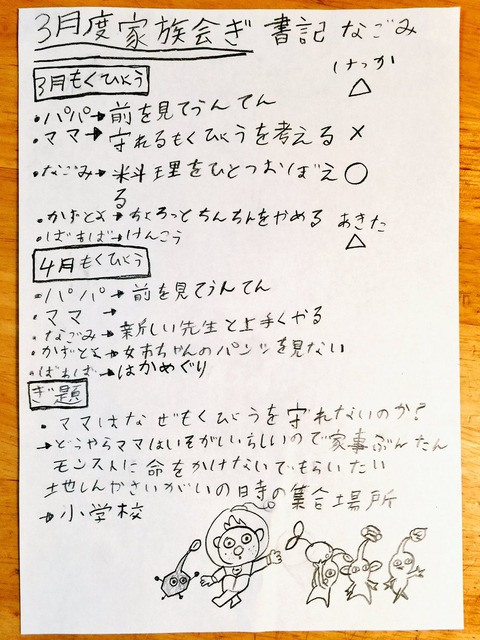 3月度家族会ぎ 書記 なごみ
けっか
3月もくひょう
・パパ→前を見てうんてん △
・ママ→守れるもくひょうを考える ×
・なごみ→料理をひとつおぼえ ○
る
・かずとよ→ちょろっとちんちんをやめる あきた
・ばぁば→けんこう △
4月もくひょう
・パパ→前を見てうんてん
・ママ→
・なごみ→新しい先生と上手くやる
・かずとよ→女市ちゃんのパンツを見ない
・ばぁば→はかめぐり
ぎ題
・ママはなぜもくひょうを守れないのか?
→どうやらママはいそがしいらしいので家事ぶんたん
モンストに命をかけないでもらいたい
地しんかさいがいの日時の集合場所
→小学校